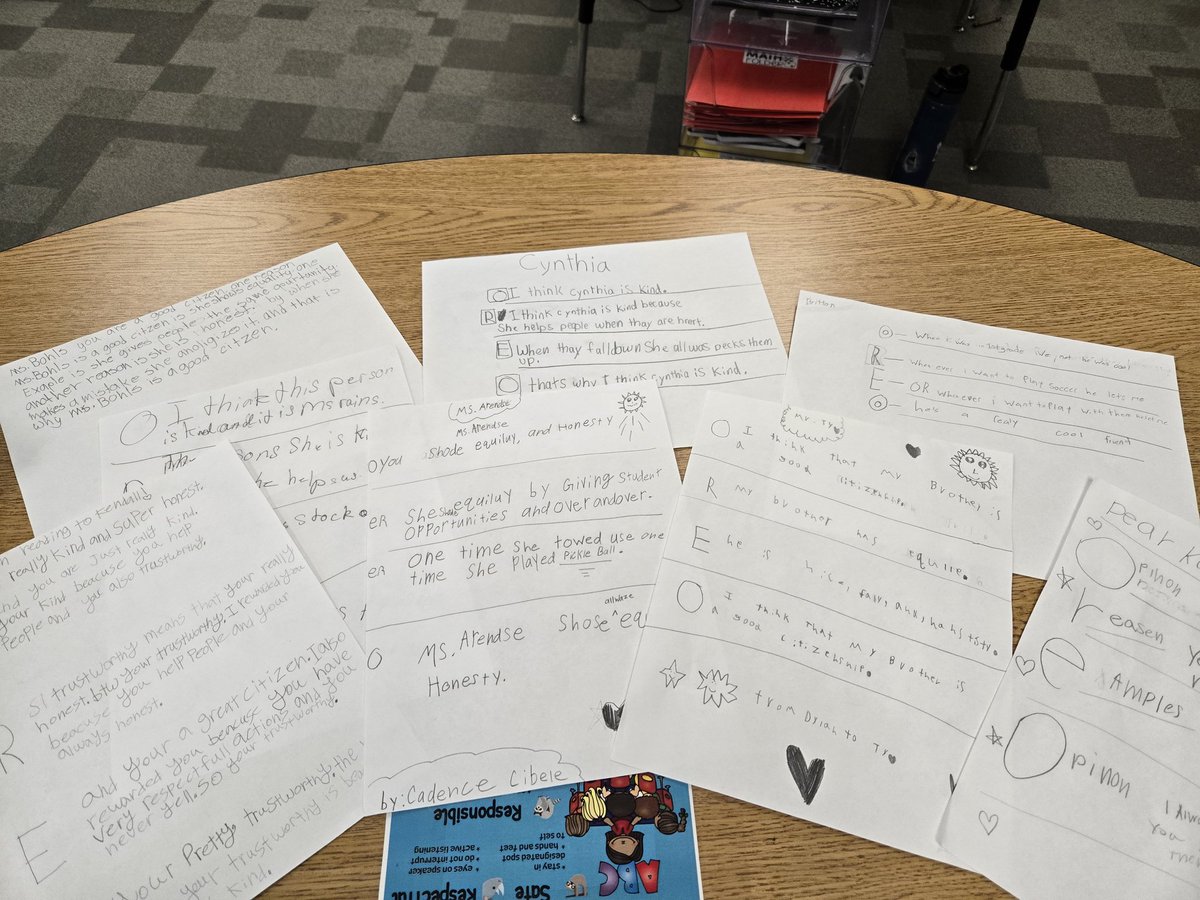 MATH
FOLDER
Ms. Bohls you are a good citizen one reason
Ms. Bohls is a good citizen is she shows equality one
Exaple is she gives people the same oportunity
another reason is she is honest by when she
makes a mistake she anoligizes it and that is
why Ms. Bohls is a good citzen.
O I think this person
is kind and it is Ms rains.
She is
he helps us
stock
Cynthia
O I think cynthia is kind.
R I think cynthia is kind because
She helps people when thay are hreert.
E When thay falldown She all was pecks them
up.
O thats why I think cynthia is kind.
Britton
O
R When ever I want to play soccer he let's me
E OR Whenever i want to play with them
O he's a realy cool friend
reading to Kendall
really Kind and SuPer honest.
and you are Just really kind.
your Kind beacuse you help
People and you also trustworthy.
R
trustworthy means that your really
honest. btw your trustworthy. I
beacuse you help People and your
always honest.
E
and your a great citizen. I also
rewarded you beacuse you have
very respectfull actions and you
never yell. So your trustworthy.
your Pretty, trustworthy. the
your trustworthy
Kind.
Ms. Arendse
Ms. Arendse
O you Shode equiluy, and Honesty
ER She Shode equiluy by Giving Student
OPPortunities and over andover.
ER one time She towed use one
time She Played Pickle Ball.
allwaze
O Ms. Arendse Shose eq
Honesty.
by: Cadence Cibele
Mr. Ty
O I think that my Brother is
a good
R My brother has
E he is nice, fair,
O I think that My Brother is
a good citizenship.
from Dylan to Ty
Dear
Opinon
reasen
examples
Opinon
I Alwa
You
The
Responsible
to self
hands and feet
designated spot
* stay in
Safe
ABC
* active listening
* do not interrupt
* eyes on speaker